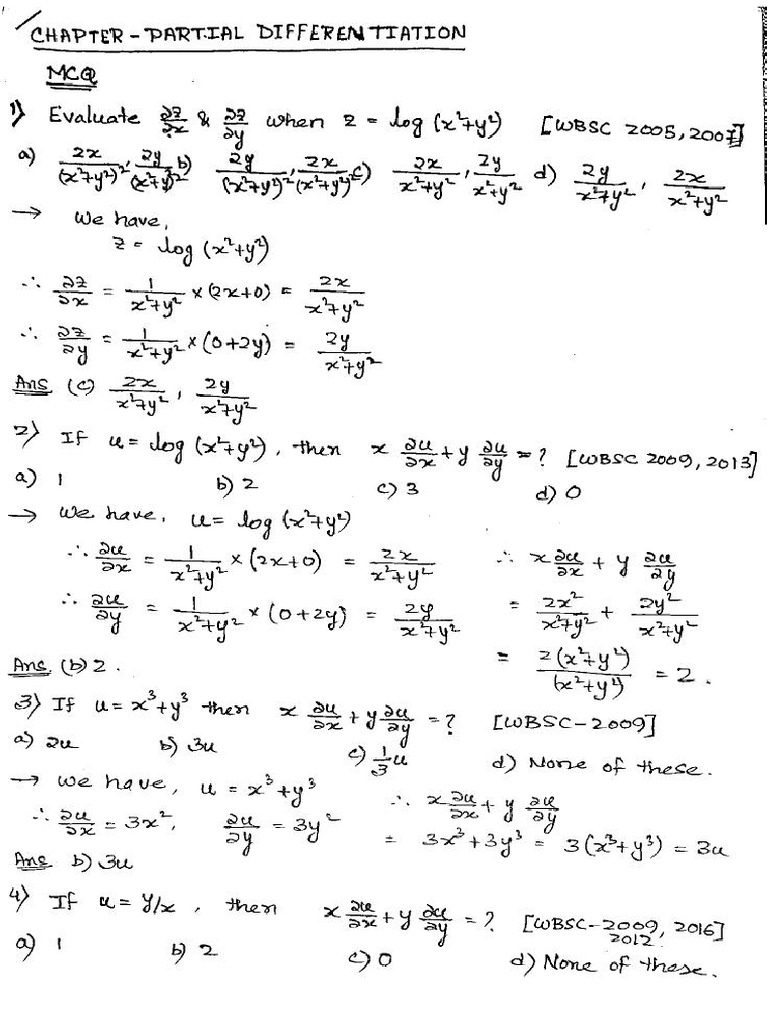 CHAPTER - PARTIAL DIFFERENTIATION
MCQ
1) Evaluate ∂z/∂x & ∂z/∂y when z = log (x²+y²) [WBSC 2005, 2007]
a) 2x/(x²+y²)², 2y/(x²+y²)² b) 2y/(x²+y²)², 2x/(x²+y²)² c) 2x/x²+y², 2y/x²+y² d) 2y/x²+y², 2x/x²+y²
→ We have,
z = log (x²+y²)
∴ ∂z/∂x = 1/x²+y² × (2x+0) = 2x/x²+y²
∴ ∂z/∂y = 1/x²+y² × (0+2y) = 2y/x²+y²
Ans (c) 2x/x²+y², 2y/x²+y²
2) If u = log (x²+y²), then x ∂u/∂x + y ∂u/∂y = ? [WBSC 2009, 2013]
a) 1 b) 2 c) 3 d) 0
→ We have, u = log (x²+y²)
∴ ∂u/∂x = 1/x²+y² × (2x+0) = 2x/x²+y² ∴ x ∂u/∂x + y ∂u/∂y
∴ ∂u/∂y = 1/x²+y² × (0+2y) = 2y/x²+y² = 2x²/x²+y² + 2y²/x²+y²
= 2(x²+y²)/(x²+y²) = 2.
Ans (b) 2.
3) If u = x³+y³ then x ∂u/∂x + y ∂u/∂y = ? [WBSC-2009]
a) 2u b) 3u c) 1/3 u d) None of these.
→ We have, u = x³+y³ ∴ x ∂u/∂x + y ∂u/∂y
∴ ∂u/∂x = 3x², ∂u/∂y = 3y² = 3x³+3y³ = 3(x³+y³) = 3u
Ans b) 3u
4) If u = y/x, then x ∂u/∂x + y ∂u/∂y = ? [WBSC-2009, 2016]
2012
a) 1 b) 2 c) 0 d) None of these.